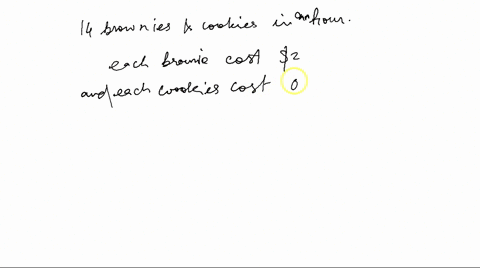 14 brownies & cookies in an hour.
each brownie cost $2
and each cookies cost 0